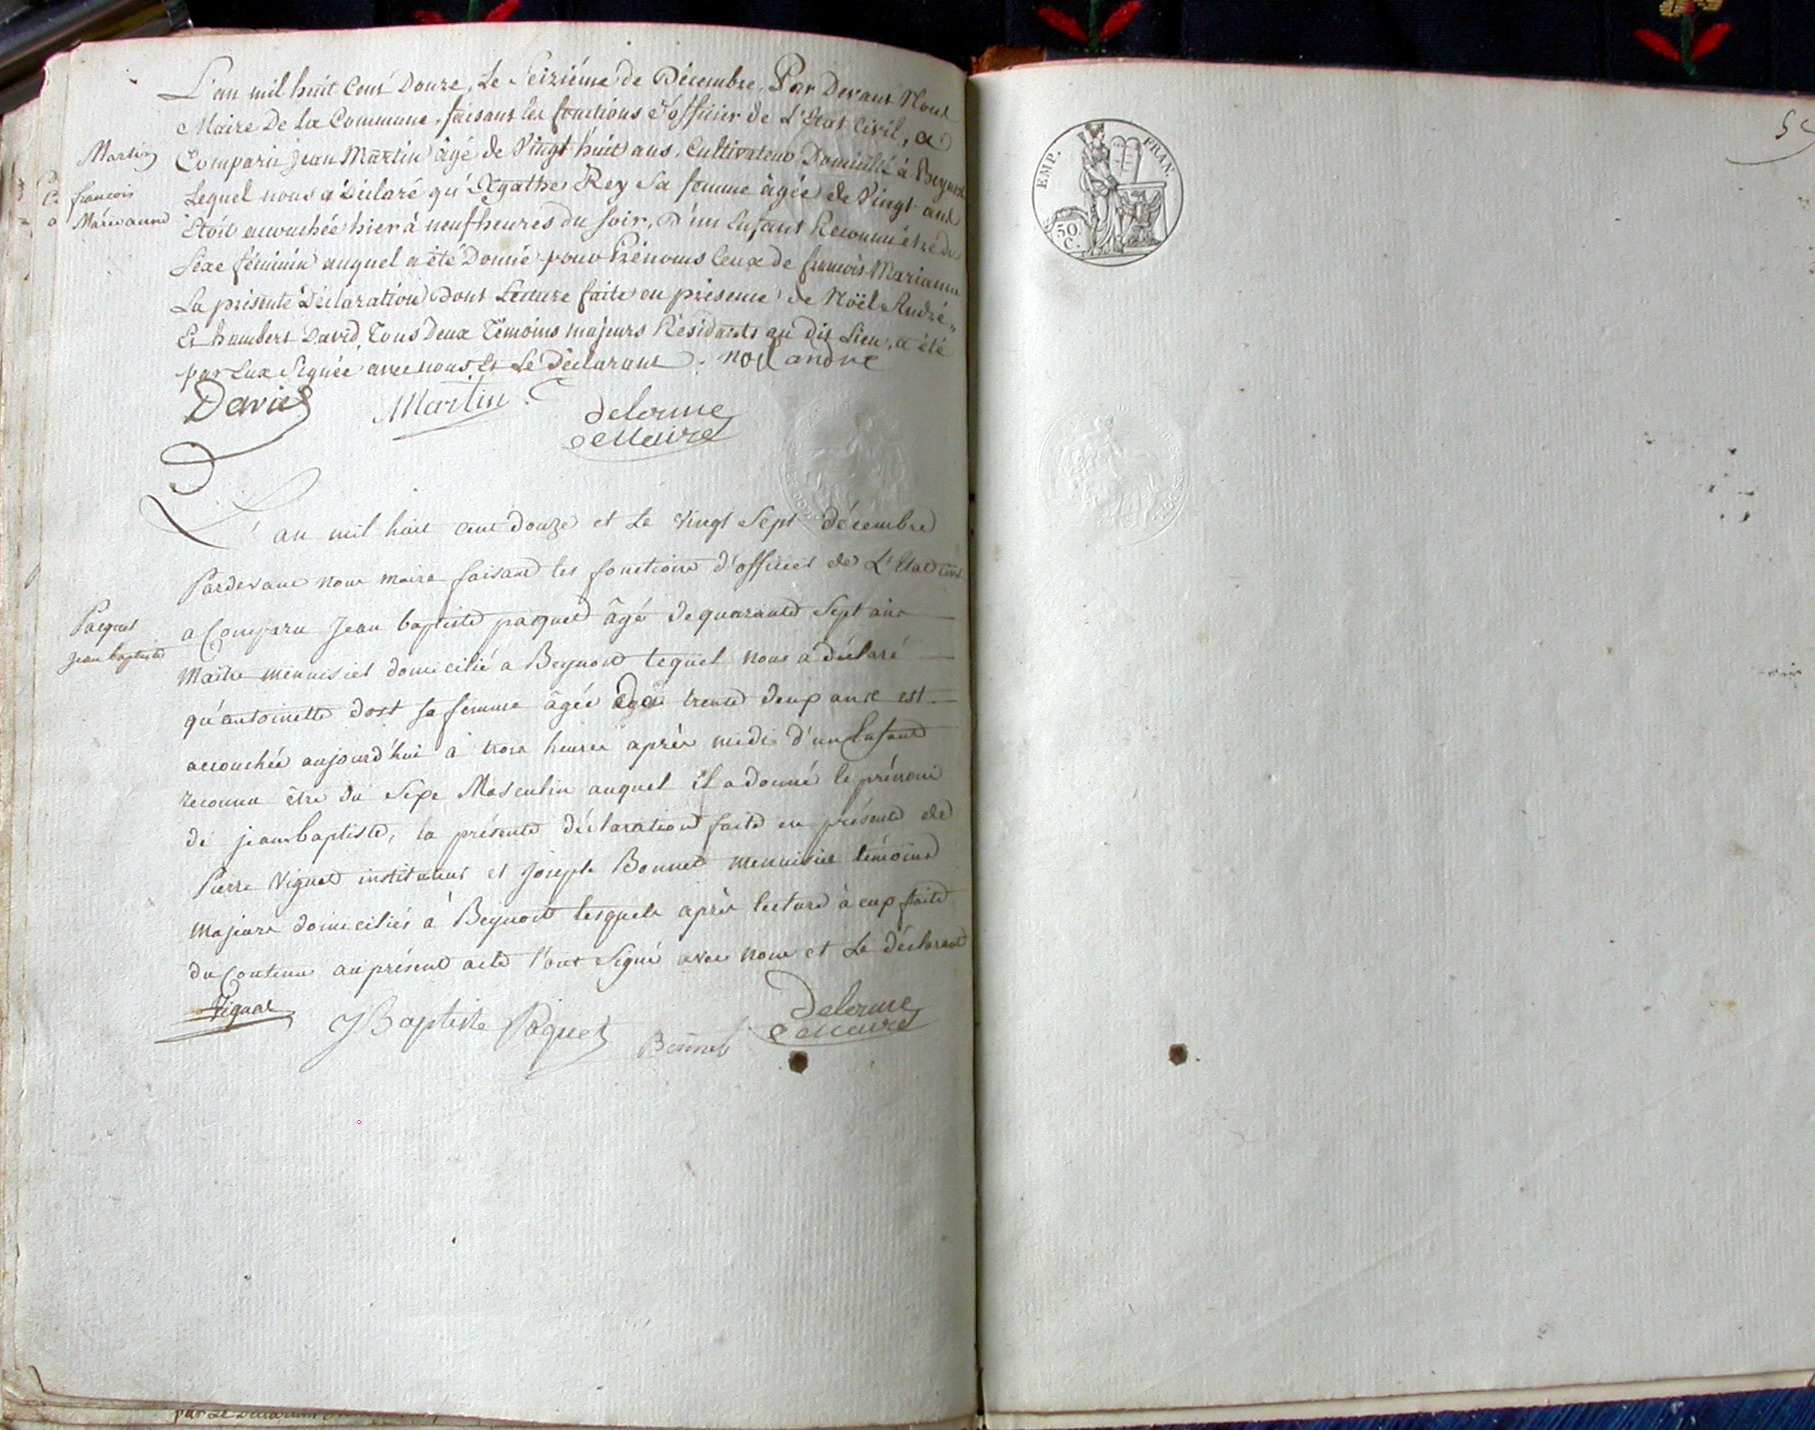 L'an mil huit Cent Douze, Le Seiziéme de Décembre, Par Devant Nous
Maire De La Commune, faisant les fonctions d'officier de L'Etat Civil, a
Martin
Comparu Jean Martin âgé de Vingt huit ans, Cultivateur Domicilié à Beynost
françois
Marianne
Lequel nous a Déclaré qu'Agathe Rey Sa femme âgée de Vingt ans
Etoit accouchée hier à neuf heures du Soir, D'un Enfant Reconnu être du
Sexe féminin auquel a été Donné pour Prénoms Ceux de francois Marianne
La présente Déclaration Dont Lecture faite en présence de Noël André
Et humbert David, Tous Deux Témoins majeurs Résidants au dit Lieu, a été
par Eux Signée avec nous Et Le Déclarant. noel andre
David Martin delorme
Maire
L'an mil huit cent douze et Le vingt Sept décembre
Pardevant nous maire faisant les fonctions d'officier de L'Etat civil
Paquet
a Comparu Jean baptiste paquet âgé de quarante Sept ans
Jean baptiste
Maitre menuisier domicilié a Beynost lequel nous a déclaré
qu'antoinette dost sa femme âgée de trente deux ans est
accouchée aujourd'hui à trois heures après midi d'un Enfant
reconnu être du Sexe Masculin auquel il a donné le prénom
de jean baptiste, la présente déclaration faite en présence de
Pierre Viguet instituteur et joseph Bonnet menuisier témoins
majeurs domiciliés à Beynost lesquels après lecture à eux faite
du Contenu au présent acte l'ont Signé avec nous et Le déclarant
JBaptiste Paquet Bonnet Delorme
Maire
EMP. FRAN.
50
C.